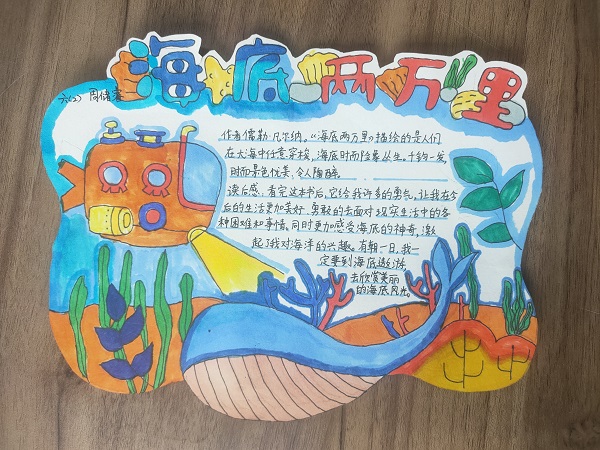 海底两万里
六(2) 周储蓉
作者儒勒.凡尔纳。《海底两万里》描绘的是人们
在大海中任意穿挨，海底时而险象丛生、千钧一发，
时而景色优美、令人陶醉。
读后感：看完这本书后，它给我许多的勇气，让我在今
后的生活更加美好，勇敢的去面对现实生活中的各
种困难和事情。同时更加感受海底的神奇，激
起了我对海洋的兴趣。有朝一日，我一
定要到海底遨游，
去欣赏美丽
的海底风光。